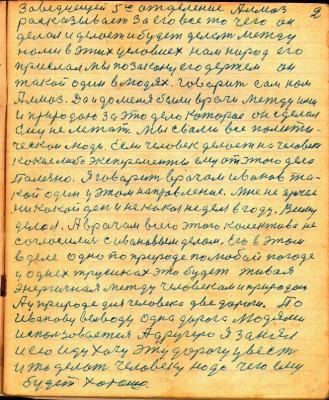 Заведующей 5го отделение Алмаз 2
расказывает за его все то чего он
делал и делает и будет делать между
нами в этих условиях нам народ его
прислал мы по закону его держем он
такой один в людях. Говарит сам нам
Алмаз. Да и до меня были врачи между ими
и природою за это дело которае он сделал
Ему не мешат. Мы с вами все полити-
ческаи люди. Если человек делает на человеке
какие либо эксперементы ему от этого дела
Полезно. Я говарит врачам иванов та-
кой один у этом направление. Мне не нужен
никокой ден и не какоя неделя в году. Всему
делоя. А врачам всего этого колектива не
согласился с ивановым делам. Его в этом
в деле одно по природе по любой погоде
у одних трусиках это будет живая
Энергичная между человекам и природою
А у природе для человека две дороги. По
Иванову выводу одна дорога Людями
использовается А другую Я занял
и ею иду хочу эту дорогу ввест
и то делат человеку надо чего ему
будет Хорошо.